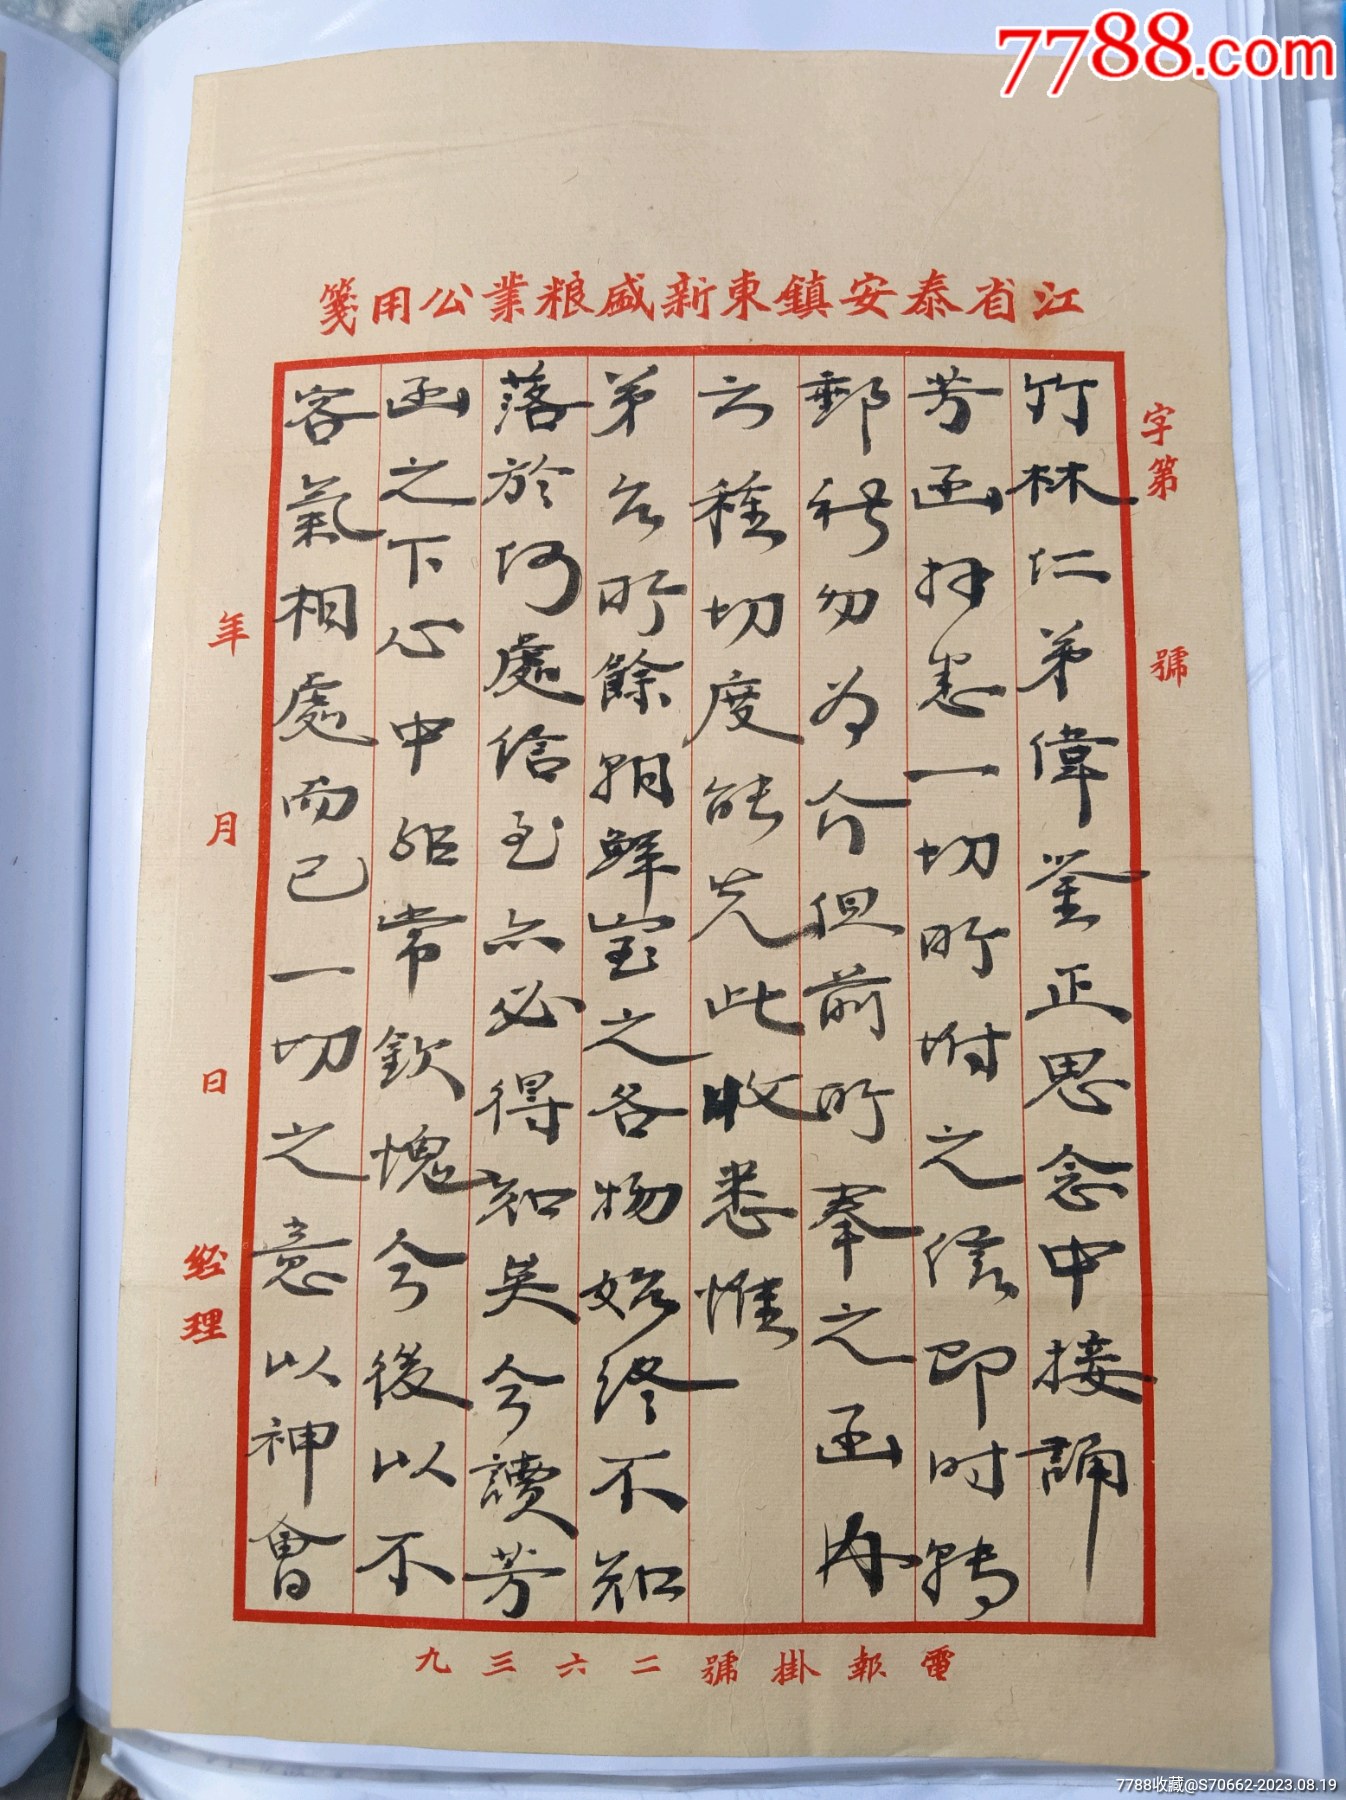 7788.com
江省泰安鎮東新盛粮業公用箋
字第 號
竹林仁弟偉鉴正思念中接誦
芳函拜悉一切所附之信即时轉
郵祈勿为介但前所奉之函内
云種切度能先此收悉惟
弟台所餘之各物始終不知
落於何處信至亦必得知矣今讀芳
函之下心中非常欽愧今後以不
客氣相處而已一切之意以神會
年 月 日 经理
電報掛號二六三九
7788收藏@S70662-2023.08.19